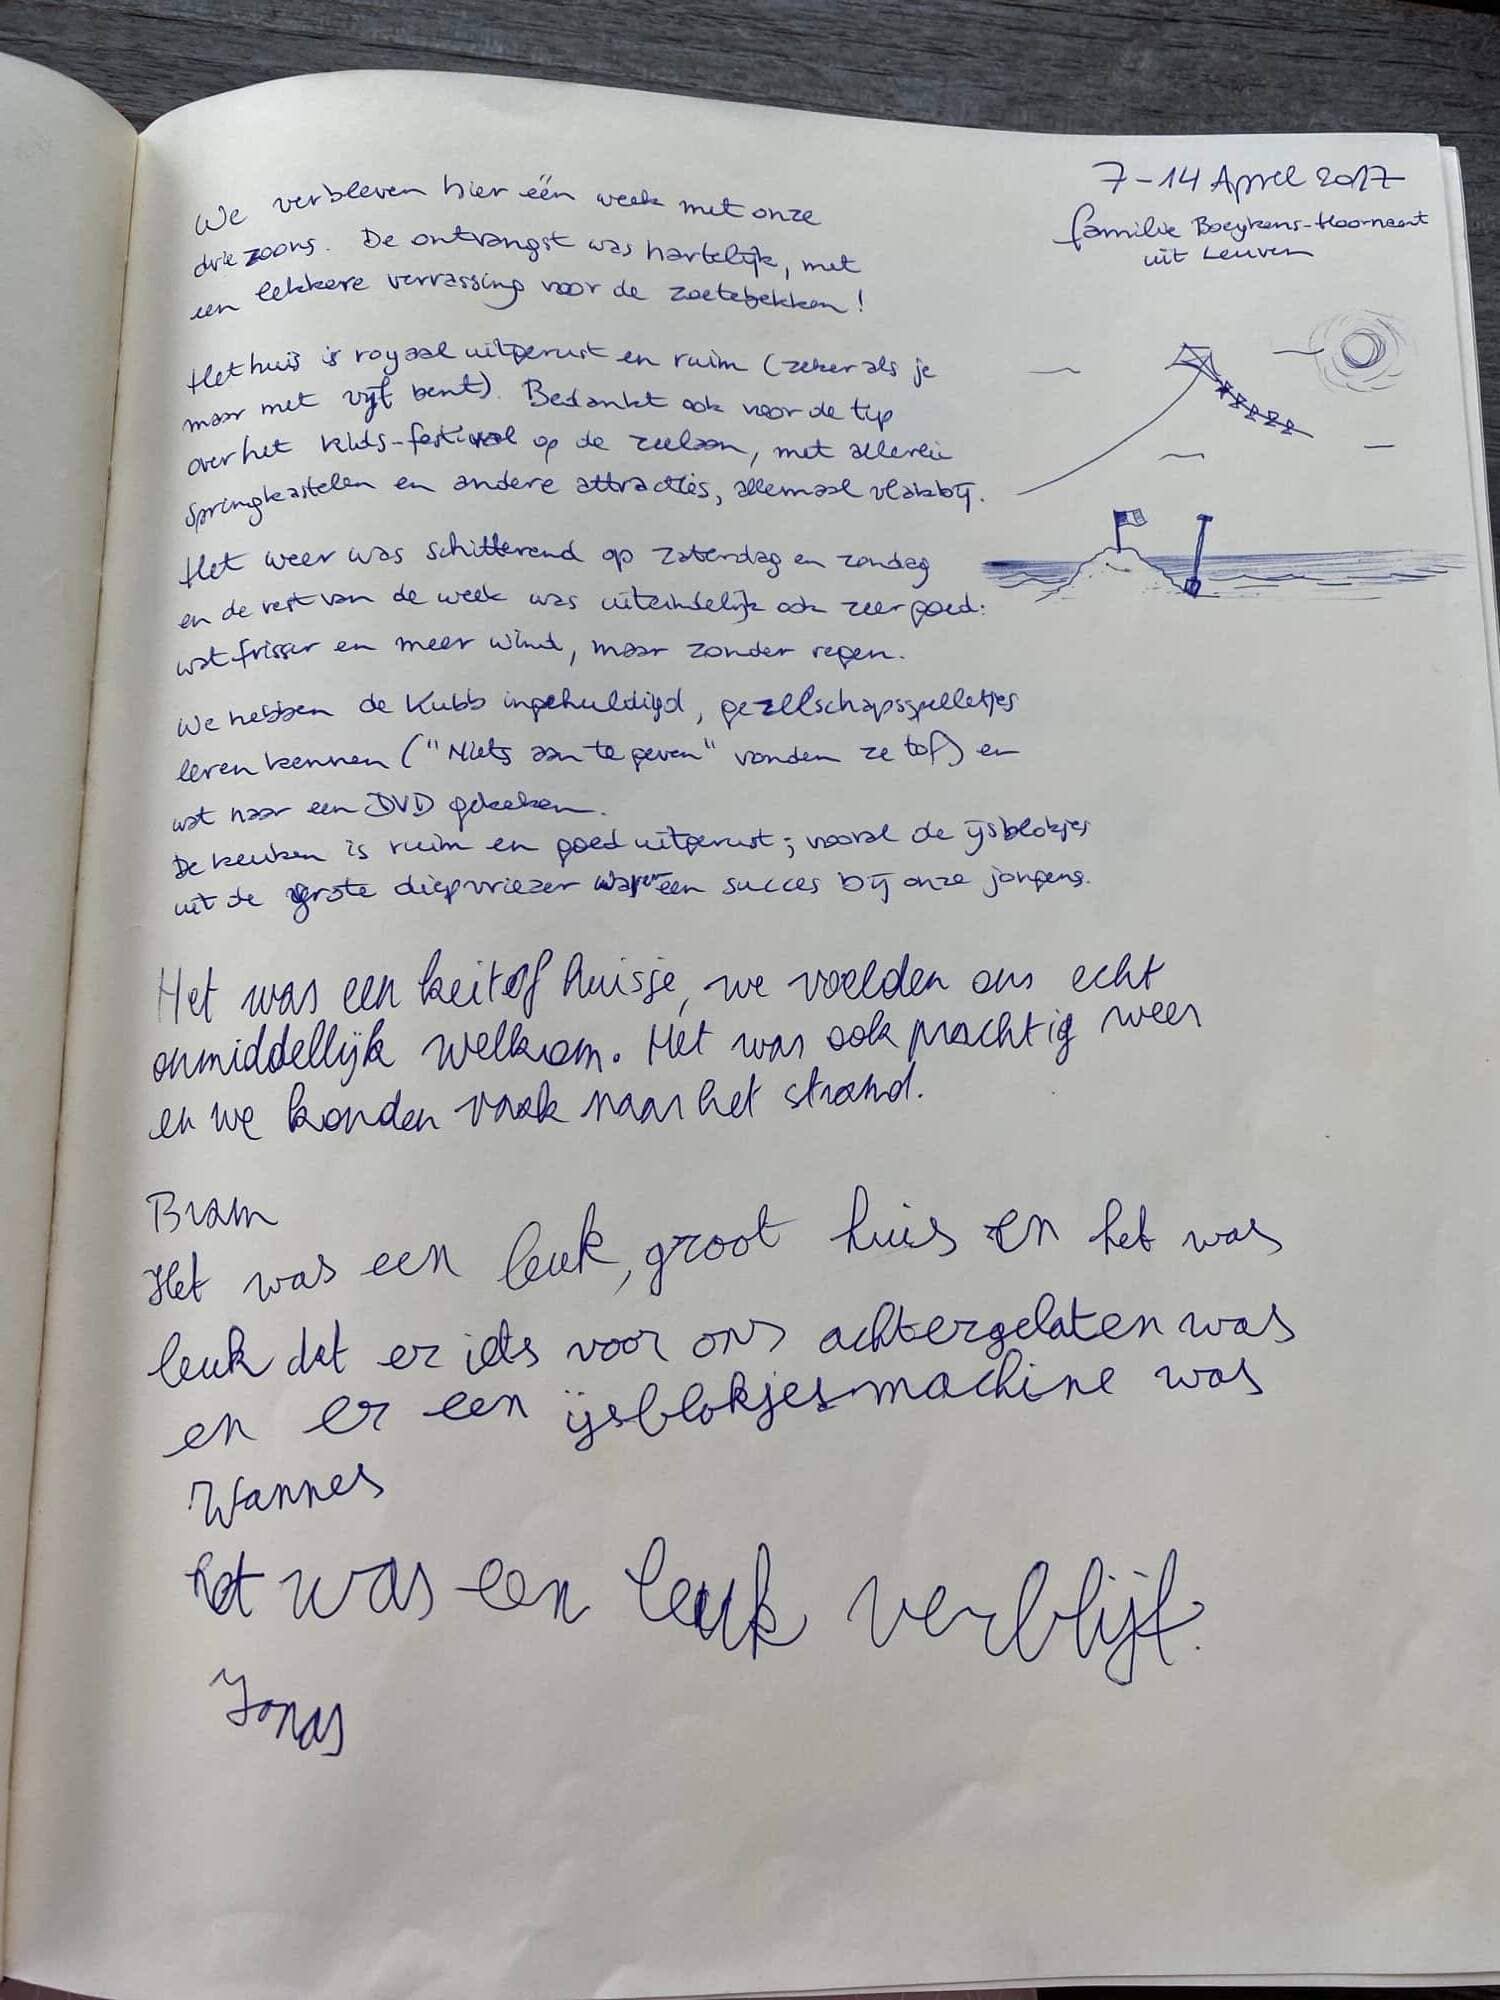 7-14 April 2017
familie Boeykens-Hoornaert
uit Leuven
We verbleven hier één week met onze
drie zoons. De ontvangst was hartelijk, met
een lekkere verrassing voor de zoetebekken!
Het huis is royaal uitgerust en ruim (zeker als je
maar met vijf bent). Bedankt ook voor de tip
over het kids-festival op de zeelaan, met allerlei
springkastelen en andere attracties, allemaal vlakbij.
Het weer was schitterend op zaterdag en zondag
en de rest van de week was uiteindelijk ook zeer goed:
wat frisser en meer wind, maar zonder regen.
We hebben de Kubb ingehuldigd, gezellschapsspelletjes
leren kennen ("Niets aan te geven" vonden ze tof) en
wat naar een DVD gekeken.
De keuken is ruim en goed uitgerust; vooral de ijsblokjes
uit de grote diepvriezer waren een succes bij onze jongens.
Het was een keitof huisje, we voelden ons echt
onmiddellijk welkom. Het was ook prachtig weer
en we konden vaak naar het strand.
Bram
Het was een leuk, groot huis en het was
leuk dat er iets voor ons achtergelaten was
en er een ijsblokjesmachine was
Wannes
het was een leuk verblijf.
Jonas